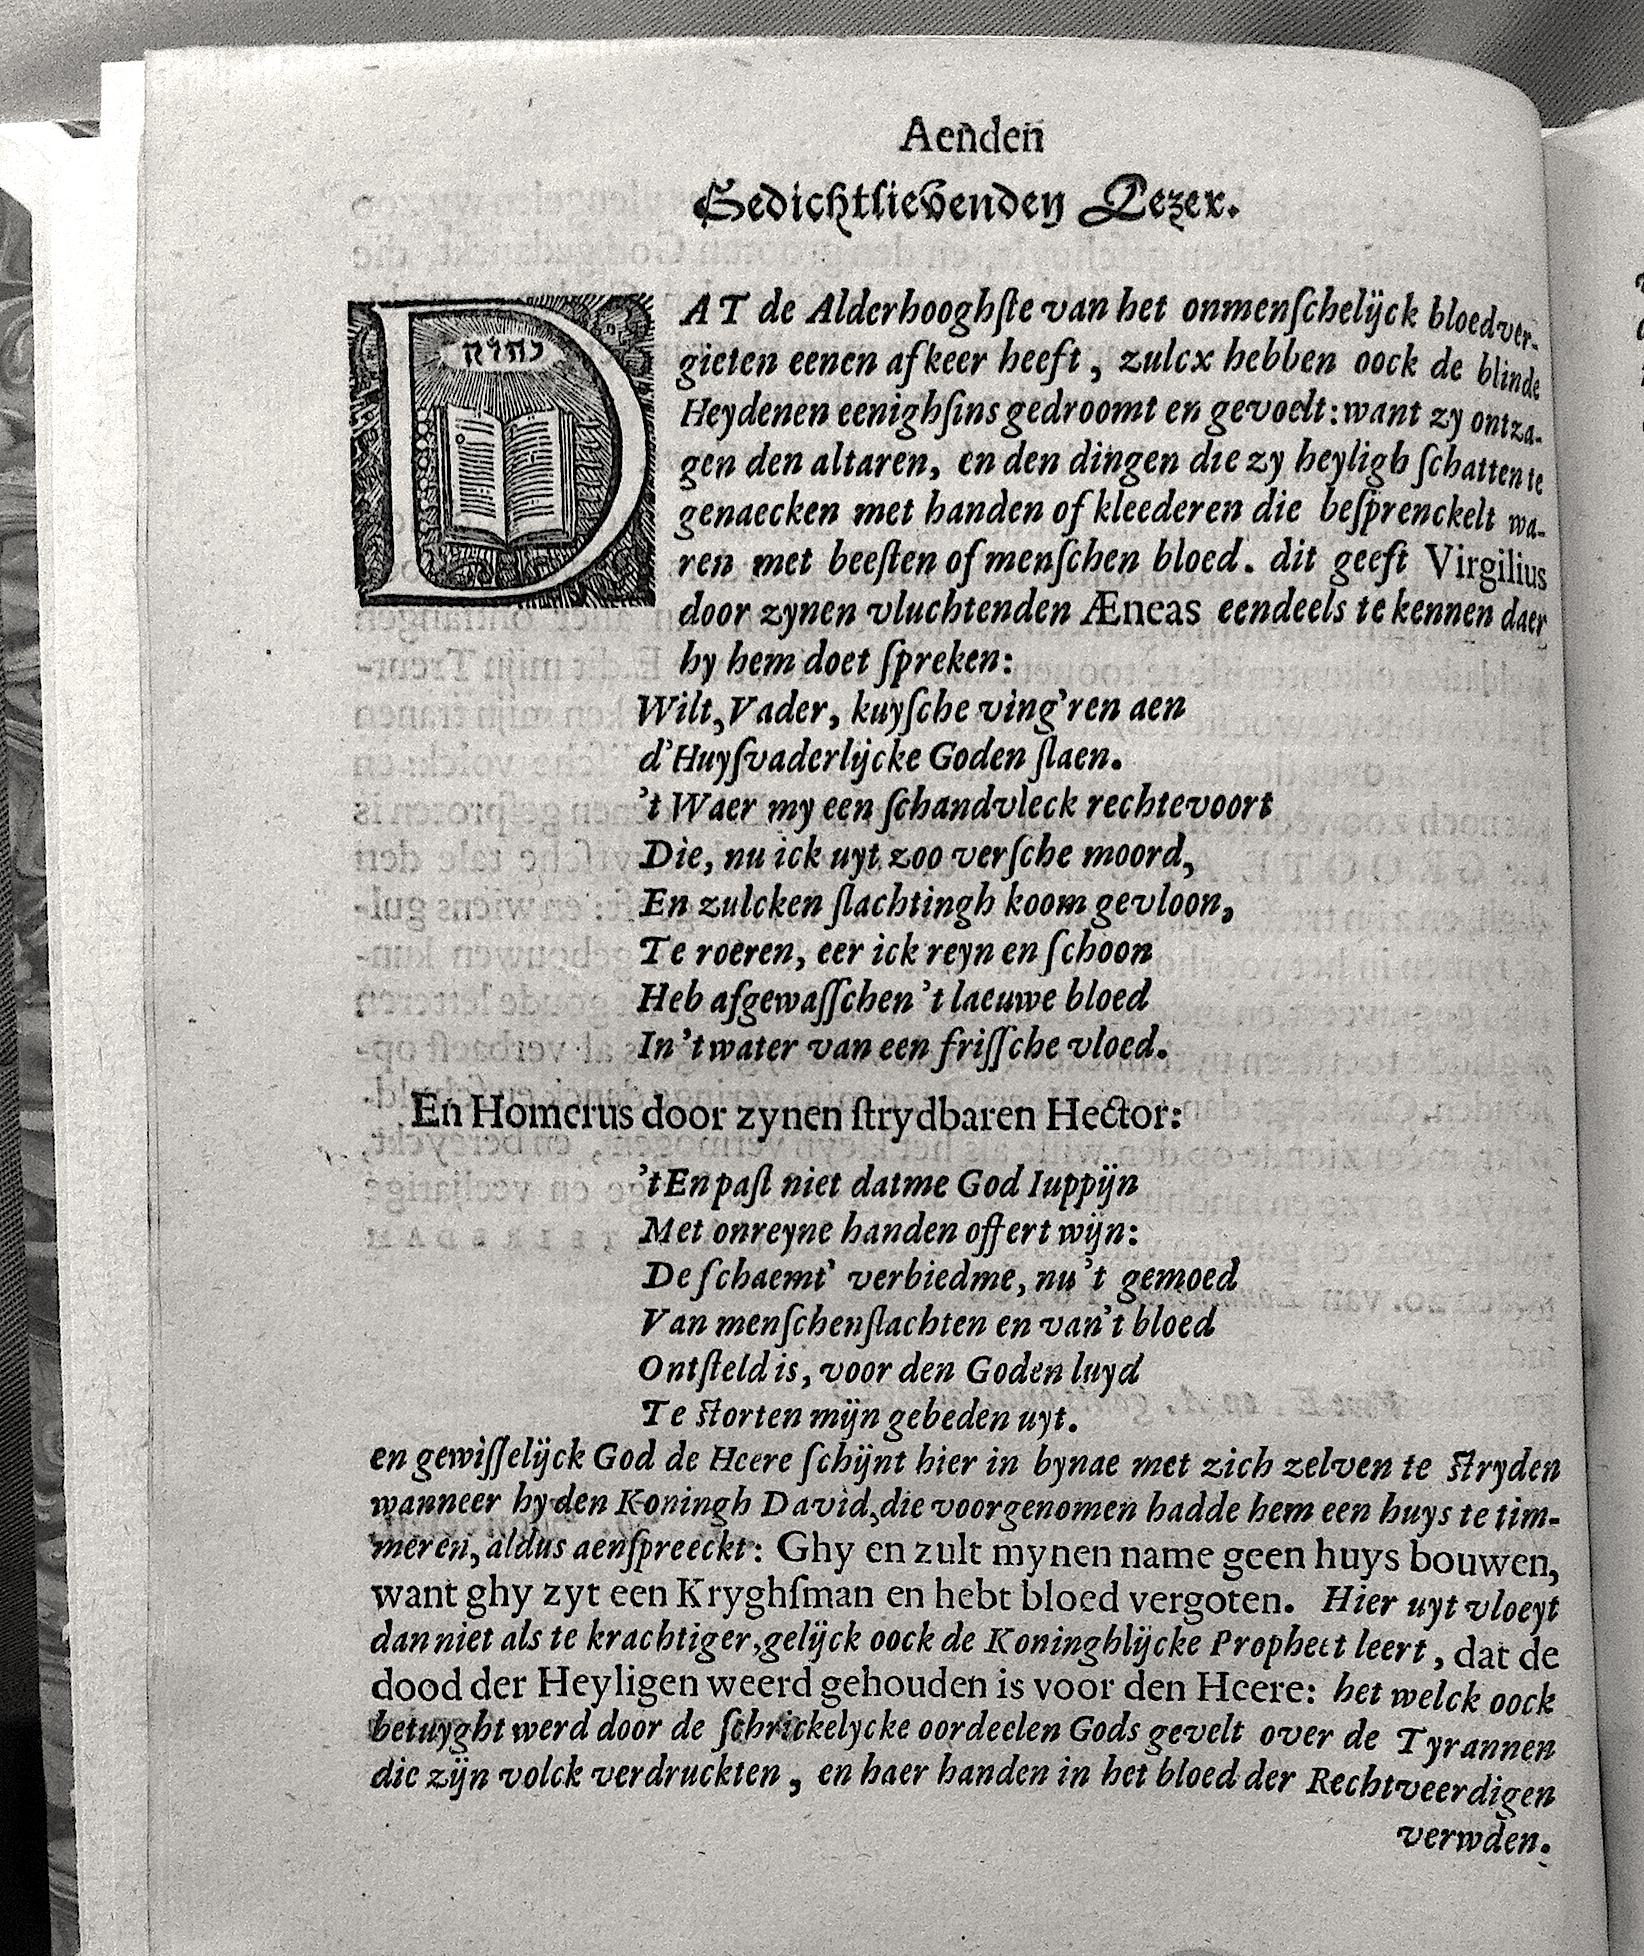 Aenden
Gedichtlievenden Lezer.
יהוה
DAT de Alderhooghſte van het onmenſchelĳck bloedver-
gieten eenen afkeer heeft, zulcx hebben oock de blinde
Heydenen eenighſins gedroomt en gevoelt: want zy ontza-
gen den altaren, en den dingen die zy heyligh ſchatten te
genaecken met handen of kleederen die beſprenckelt wa-
ren met beeſten of menſchen bloed. dit geeft Virgilius
door zynen vluchtenden Æneas eendeels te kennen daer
hy hem doet ſpreken:
Wilt, Vader, kuyſche ving'ren aen
d'Huyſvaderlĳcke Goden ſlaen.
't Waer my een ſchandvleck rechtevoort
Die, nu ick uyt zoo verſche moord,
En zulcken ſlachtingh koom gevloon,
Te roeren, eer ick reyn en ſchoon
Heb afgewaſſchen 't laeuwe bloed
In 't water van een friſſche vloed.
En Homerus door zynen ſtrydbaren Hector:
't En paſt niet datme God Iuppĳn
Met onreyne handen offert wĳn:
De ſchaemt' verbiedme, nu 't gemoed
Van menſchenſlachten en van't bloed
Ontſteld is, voor den Goden luyd
Te ſtorten mĳn gebeden uyt.
en gewiſſelĳck God de Heere ſchĳnt hier in bynae met zich zelven te ſtryden
wanneer hy den Koningh David, die voorgenomen hadde hem een huys te tim-
meren, aldus aenſpreeckt: Ghy en zult mynen name geen huys bouwen,
want ghy zyt een Kryghſman en hebt bloed vergoten. Hier uyt vloeyt
dan niet als te krachtiger, gelĳck oock de Koninghlĳcke Propheet leert, dat de
dood der Heyligen weerd gehouden is voor den Heere: het welck oock
betuyght werd door de ſchrickelycke oordeelen Gods gevelt over de Tyrannen
die zĳn volck verdruckten, en haer handen in het bloed der Rechtveerdigen
verwden.